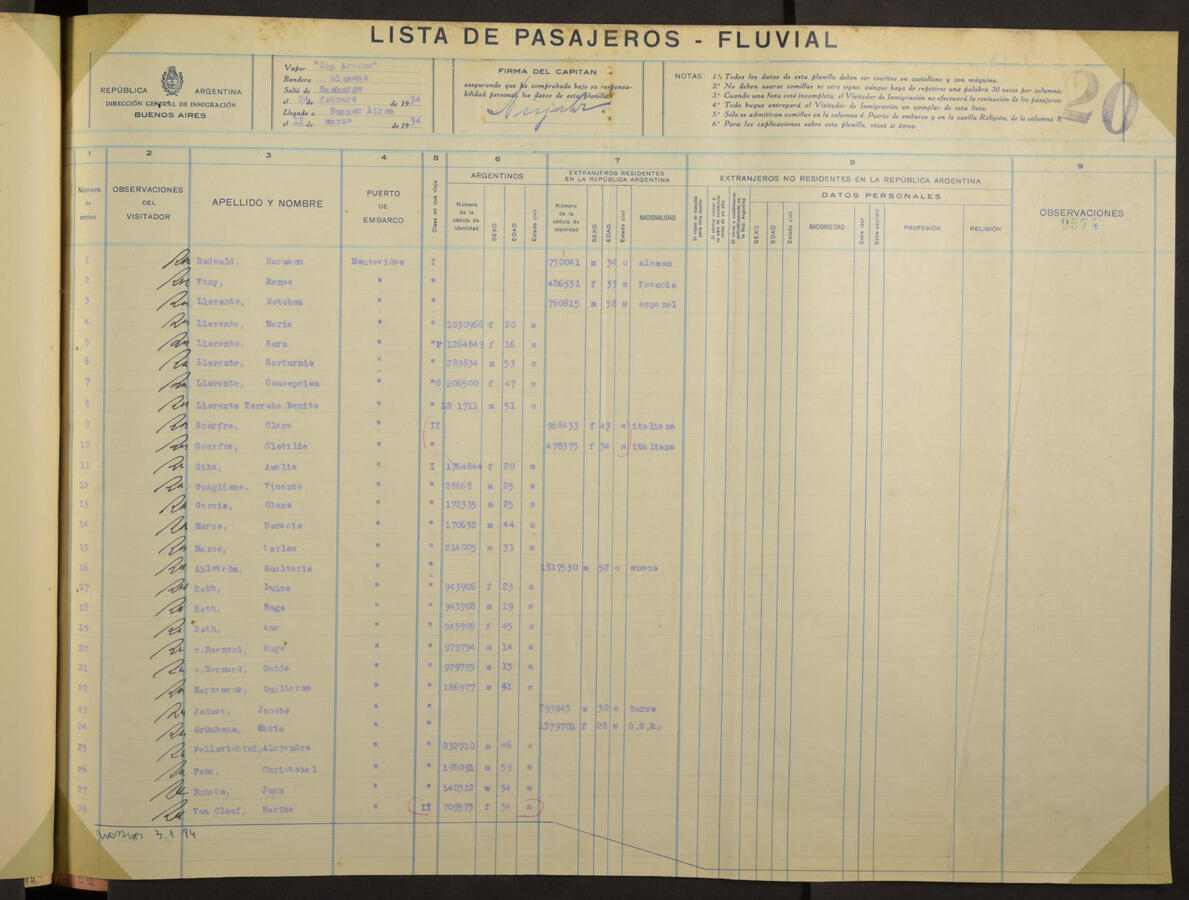 LISTA DE PASAJEROS - FLUVIAL
REPÚBLICA ARGENTINA
DIRECCIÓN GENERAL DE INMIGRACIÓN
BUENOS AIRES
Vapor "Cap Arcona"
Bandera alemana
Salió de Hamburgo
el de febrero de 1934
Llegado a Buenos Aires
el 12 de marzo de 1934
FIRMA DEL CAPITAN
asegurando que ha comprobado bajo su responsa-
bilidad personal, los datos de esta planilla
NOTAS
1.ª Todos los datos de esta planilla deben ser escritos en castellano y con máquina.
2.ª No deben usarse comillas ni otro signo, aunque haya de repetirse una palabra 30 veces por columna.
3.ª Cuando una lista esté incompleta, el Visitador de Inmigración no efectuará la revisación de los pasajeros.
4.ª Todo buque entregará al Visitador de Inmigración un ejemplar de esta lista.
5.ª Sólo se admitirán comillas en la columna 4. Puerto de embarco y en la casilla Religión, de la columna 8.
6.ª Para las explicaciones sobre esta planilla, véase al dorso.
20
1 2 3 4 5 6 7 8 9
Número de orden
OBSERVACIONES DEL VISITADOR
APELLIDO Y NOMBRE
PUERTO DE EMBARCO
Clase en que viaja
ARGENTINOS
Número de la cédula de identidad
SEXO
EDAD
Estado civil
EXTRANJEROS RESIDENTES EN LA REPÚBLICA ARGENTINA
Número de la cédula de identidad
SEXO
EDAD
Estado civil
NACIONALIDAD
EXTRANJEROS NO RESIDENTES EN LA REPÚBLICA ARGENTINA
DATOS PERSONALES
SEXO
EDAD
Estado civil
NACIONALIDAD
Sabe leer
Sabe escribir
PROFESIÓN
RELIGIÓN
OBSERVACIONES
0574
1 Redwald, Hermann Montevideo I 730041 m 34 c aleman
2 Fany, Renee " " 486531 f 33 s francia
3 Llorente, Esteban " " 760815 m 58 s espanol
4 Llorente, Maria " " 1030966 f 20 s
5 Llorente, Sara " " 1264849 f 16 s
6 Llorente, Sarturnio " " 289834 m 53 c
7 Llorente, Concepcion " " 206500 f 47 c
8 Llorente Torroba, Benito " " 1711 m 51 c
9 Scarfro, Clara " II 968433 f 43 s italiano
10 Scarfro, Clotilde " " 478373 f 34 s italiana
11 Siba, Amalia " I 1764844 f 20 s
12 Guagliano. Vicente " " 28668 m 25 s
13 Garcia, Olano " " 172335 m 25 s
14 Marco, Horacio " " 170632 m 44 c
15 Marco, Carlos " " 214005 m 33 c
16 Ahlström, Gualterio " " 1817530 m 52 c sueco
17 Roth, Luisa " " 943906 f 23 c
18 Roth, Hugo " " 943908 m 19 c
19 Roth, Ana " " 943905 f 45 c
20 v.Bernard, Hugo " " 979794 m 14 s
21 v.Bernard, Guido " " 979795 m 13 s
22 Harteneck, Guillermo " " 186977 m 41 c
23 Jacobo " " 793943 m 30 s turco
24 Grünbaum, Maria " " 1379701 f 28 s
25 Alejandro " " 232710 m 46 c
26 Pons, Christobal " " 198091 m 59 c
27 Juan " " 140312 m 34 s
28 Van Cleef, Berthe " II 709573 f 34 s